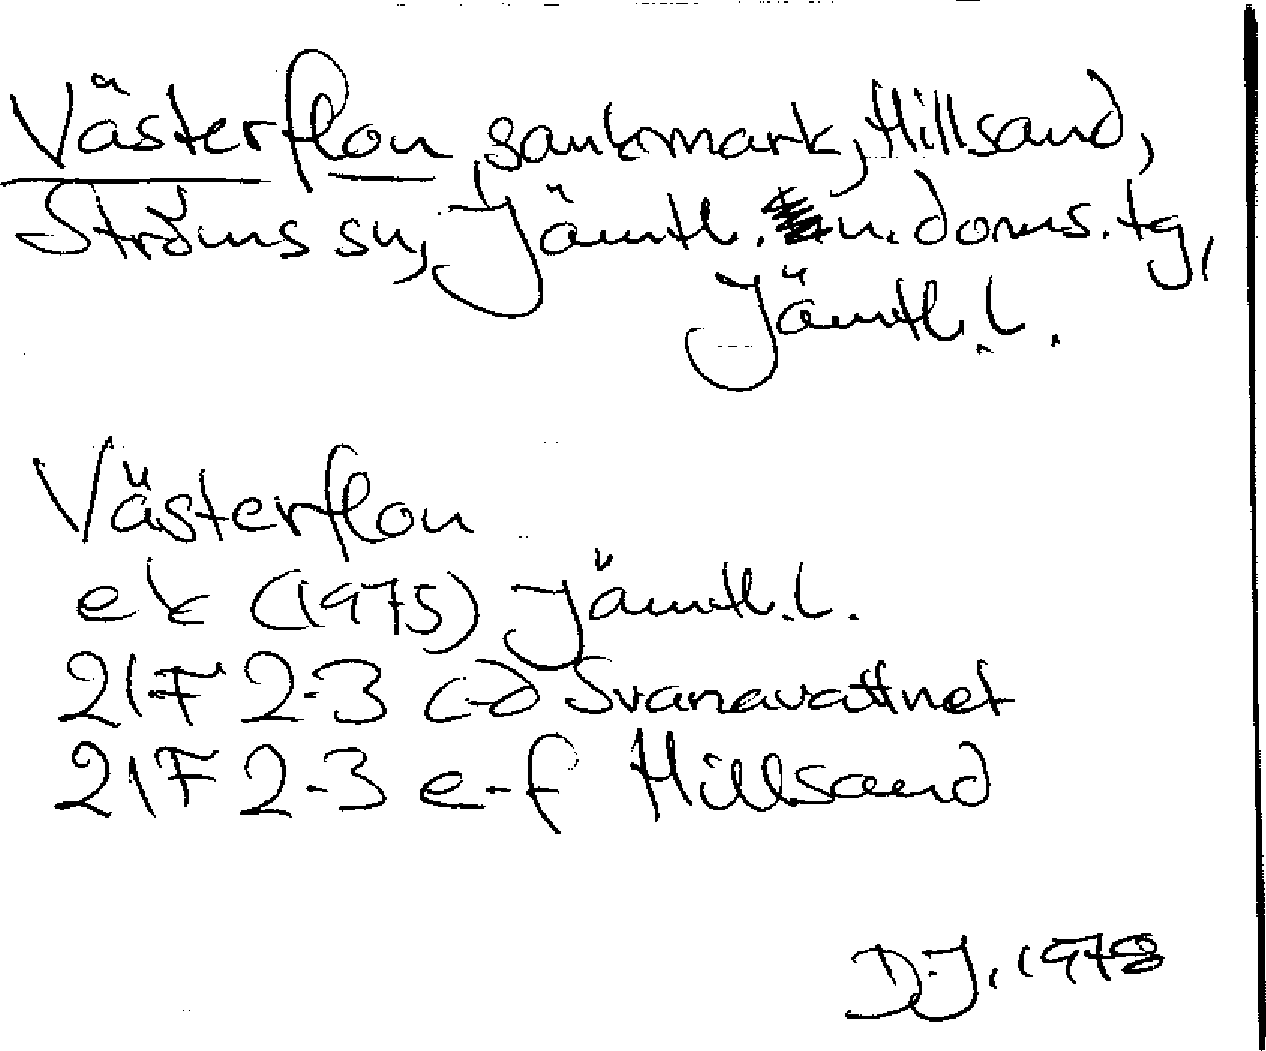 Västerflon, sankmark, Hillsand,
Ströms sn, Jämtl. n. doms. tg,
Jämtl. l.
Västerflon
ek (1975) Jämtl. l.
21F 2-3 c-d Svanavattnet
21F 2-3 e-f Hillsand
D.J. 1978